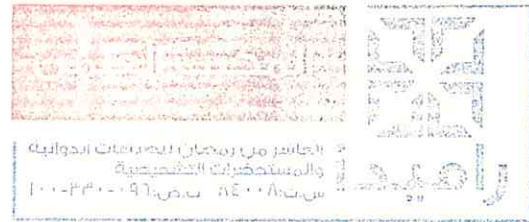 العاشر من رمضان للصناعات الدوائية
والمستحضرات التشخيصية
س.ت: ٨٤٠٠٨ ب.ض: ٠٩٦-٣٣٠-١٠٠
راميدا